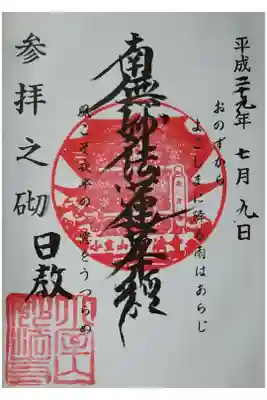 平成二十九年 七月九日
おのずから
よこしまに降る雨はあらじ
南無妙法蓮華経
風こそ夜半の窓をうつらめ
参拝之砌 日教